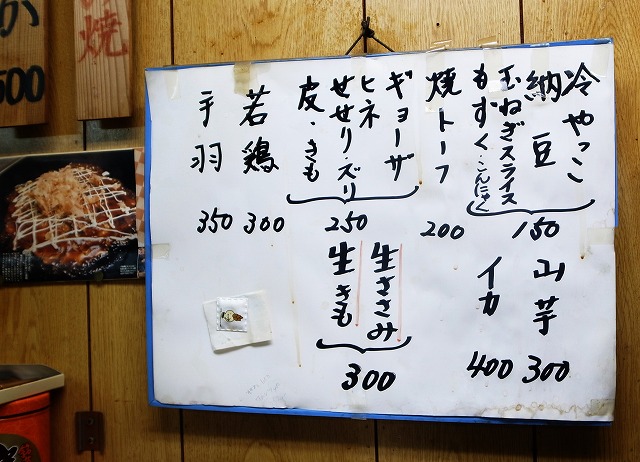 冷やっこ
納豆
玉ねぎスライス
もずく・こんにゃく
150
焼トーフ
200
ギョーザ
ヒネ
せせり・ズリ
皮・きも
250
若鶏
300
手羽
350
山芋
300
イカ
400
生ささみ
生きも
300
焼
か
500